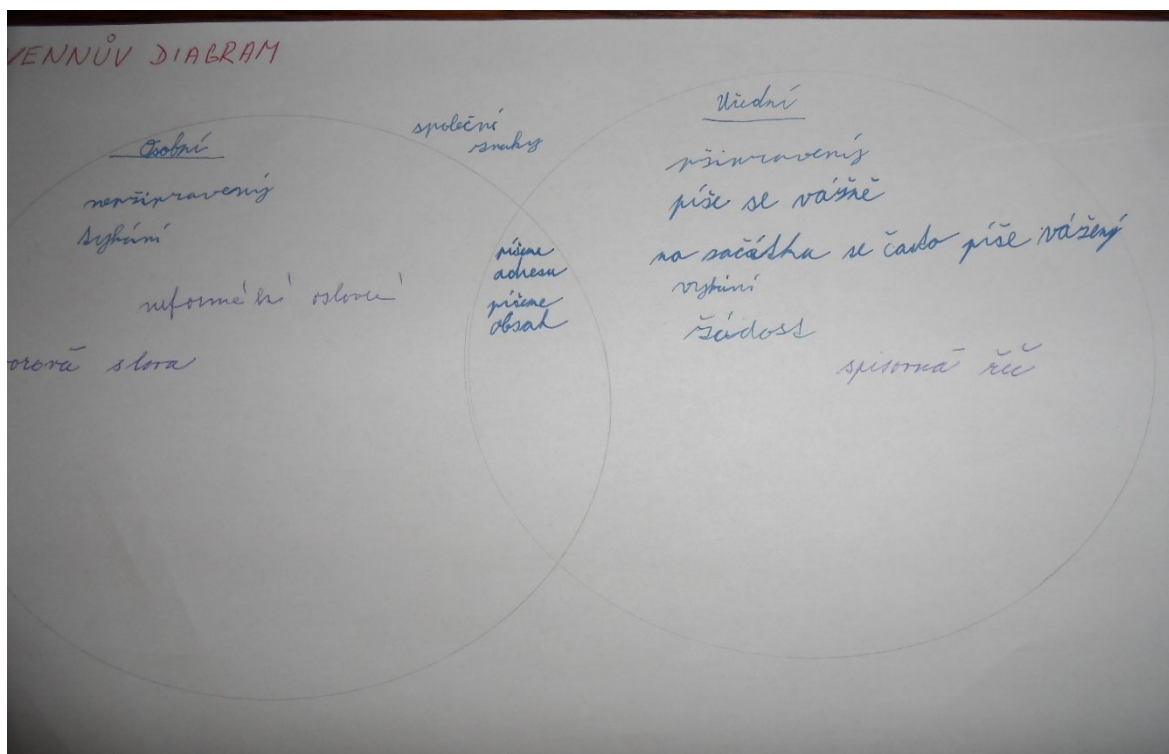 VENNŮV DIAGRAM
Osobní
nepřipravený
tykání
neformální oslovení
orová slova
společné
znaky
píšeme
adresu
píšeme
obsah
Úřední
připravený
píše se vážně
na začátku se často píše vážený
vykání
žádost
spisovná řeč